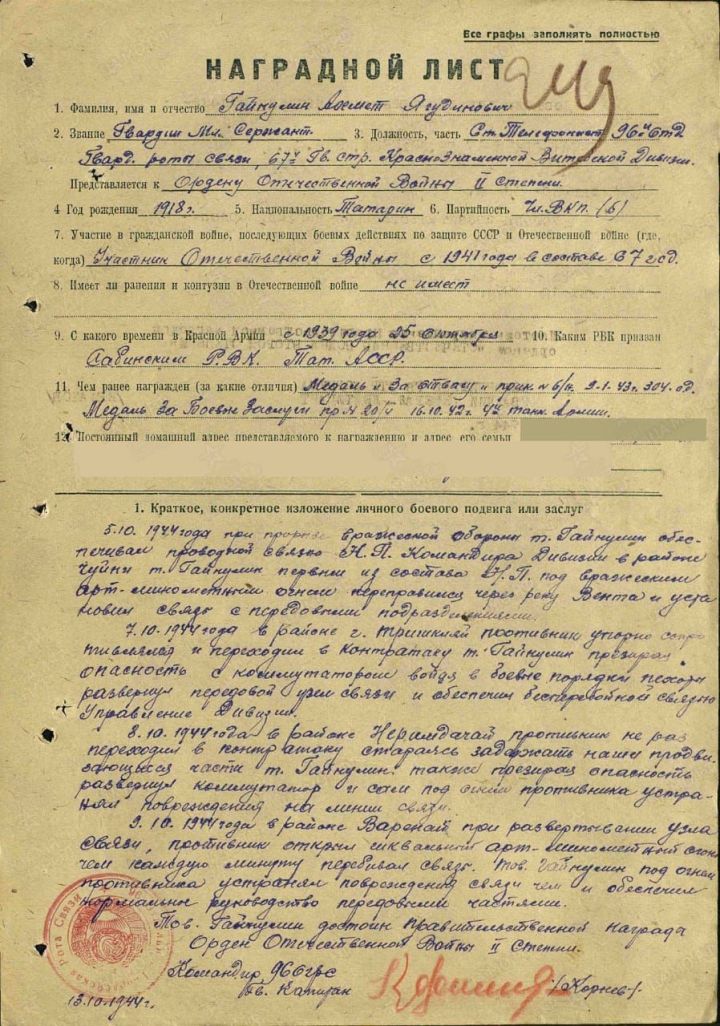 Все графы заполнять полностью
НАГРАДНОЙ ЛИСТ
1. Фамилия, имя и отчество Гайнулин Ахмет Ягудинович
2. Звание Гвардии Мл. Сержант. 3. Должность, часть Ст. Телефонист 96й отд
Гвард. роты связи, 67й Гв. стр. Краснознаменной Витебской Дивизии.
Представляется к Ордену Отечественной Войны II Степени.
4 Год рождения 1918 г. 5. Национальность Татарин 6. Партийность Чл. ВКП. (б)
7. Участие в гражданской войне, последующих боевых действиях по защите СССР и Отечественной войне (где,
когда) Участник Отечественной Войны с 1941 года в составе 67 гсд.
8. Имеет ли ранения и контузии в Отечественной войне не имеет
9. С какого времени в Красной Армии с 1939 года 25 Октября 10. Каким РВК призван
Сабинским Р.В.К. Тат. АССР.
11. Чем ранее награжден (за какие отличия) Медаль "За отвагу" прик. N 6/н. 9-1-43 г. 304 сд.
Медаль За Боевые Заслуги пр. N 20/ 16.10.42 г. 4й танк. Армии.
12. Постоянный домашний адрес представляемого к награждению и адрес его семьи
1. Краткое, конкретное изложение личного боевого подвига или заслуг
5.10. 1944 года при прорыве вражеской обороны т. Гайнулин обес-
печивал проводной связью Н.П. Командира Дивизии в районе
т. Гайнулин первый из состава Н.П. под вражеским
арт-минометным огнем переправился через реку Вента и уста
новил связь с передовыми подразделениями.
7.10-1944 года в районе г. Тришкяй противник упорно сопро
тивлялся и переходил в контратаку т. Гайнулин презирая
опасность с коммутатором войдя в боевые порядки пехоты
развернул передовой узел связи и обеспечил бесперебойной связью
Управление Дивизии.
8.10-1944 года в районе противник не раз
переходил в контратаку стараясь задержать наши продви-
гающиеся части т. Гайнулин также презирая опасность
развернул коммутатор и сам под огнем противника устра-
нял повреждения на линии связи.
9.10-1944 года в районе Варенай при развертывании узла
связи, противник открыл шквальный арт-минометный огонь
чем каждую минуту перебивал связь. Тов. Гайнулин под огнем
противника устранял повреждения связи чем и обеспечил
нормальное руководство передовыми частями.
Тов. Гайнулин достоин правительственной награды
Орден Отечественной Войны II Степени.
Командир 96 огрс
Гв. Капитан /Корнев/.
13.10-1944 г.
Рота Связи